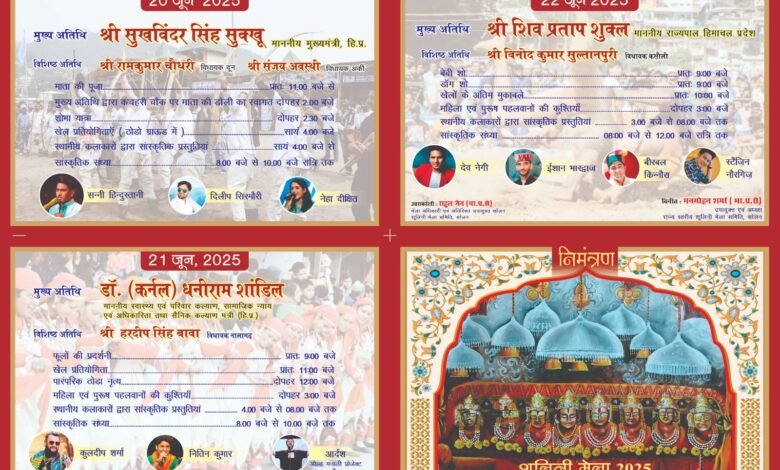 20 जून 2025
मुख्य अतिथि श्री सुखविंदर सिंह सुक्खू माननीय मुख्यमंत्री, हि.प्र.
विशिष्ठ अतिथि श्री रामकुमार चौधरी विधायक दून श्री संजय अवस्थी विधायक, अर्की
माता की पूजा प्रातः 11:00 बजे से
मुख्य अतिथि द्वारा कचहरी चौक पर माता की डोली का स्वागत दोपहर 2:00 बजे
शोभा यात्रा दोपहर 2:30 बजे
खेल प्रतियोगिताएँ ( ठोडो ग्राऊंड में ) सायं 4:00 बजे
स्थानीय कलाकारों द्वारा सांस्कृतिक प्रस्तुतियां सायं 4:00 बजे से
सांस्कृतिक संध्या 8:00 बजे से 10:00 बजे रात्रि तक
सन्नी हिन्दुस्तानी
दिलीप सिरमौरी
नेहा दीक्षित
22 जून 2025
मुख्य अतिथि श्री शिव प्रताप शुक्ल माननीय राज्यपाल हिमाचल प्रदेश
विशिष्ठ अतिथि श्री विनोद कुमार सुल्तानपुरी विधायक कसौली
बेबी शो प्रातः 9:00 बजे
डॉग शो प्रातः 9:00 बजे
खेलों के अंतिम मुकाबले प्रातः 10:00 बजे
महिला एवं पुरूष पहलवानों की कुश्तियाँ दोपहर 3:00 बजे
स्थानीय कलाकारों द्वारा सांस्कृतिक प्रस्तुतियां 3.00 बजे से 08:00 बजे तक
सांस्कृतिक संध्या 08:00 बजे से 12.00 बजे रात्रि तक
देव नेगी
ईशान भारद्वाज
बीरबल किन्नौरा
स्टैंजिन नौरगिज़
उत्तराकांक्षी : राहुल जैन (भा.प्र.से)
मेला अधिकारी एवं अतिरिक्त उपायुक्त सोलन
शूलिनी मेला समिति, सोलन
विनीत : मनमोहन शर्मा ( भा.प्र.से)
उपायुक्त एवं अध्यक्ष
राज्य स्तरीय शूलिनी मेला समिति, सोलन
21 जून, 2025
मुख्य अतिथि डॉ. (कर्नल) धनीराम शांडिल
माननीय स्वास्थ्य एवं परिवार कल्याण, सामाजिक न्याय
एवं अधिकारिता तथा सैनिक कल्याण मंत्री (हि.प्र.)
विशिष्ठ अतिथि श्री हरदीप सिंह बावा विधायक नालागढ़
फूलों की प्रदर्शनी प्रातः 9:00 बजे
खेल प्रतियोगिता प्रातः 11:00 बजे
पारंपरिक ठोडा नृत्य दोपहर 12:00 बजे
महिला एवं पुरूष पहलवानों की कुश्तियाँ दोपहर 3:00 बजे
स्थानीय कलाकारों द्वारा सांस्कृतिक प्रस्तुतियां 4.00 बजे से 08.00 बजे तक
सांस्कृतिक संध्या 8.00 बजे से 10.00 बजे रात्रि तक
कुलदीप शर्मा
नितिन कुमार
आर्दश
निमंत्रण
शूलिनी मेला 2025